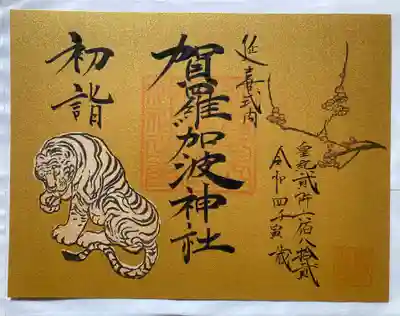 延喜式内
賀羅加波神社
初詣
皇紀貳阡六百八拾貳
令和四壬寅歳